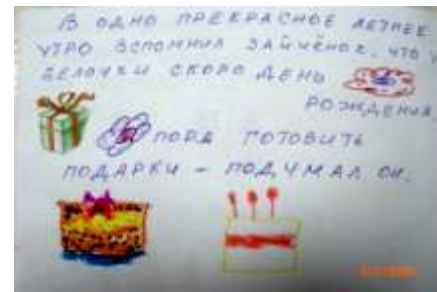 В ОДНО ПРЕКРАСНОЕ ЛЕТНЕЕ
УТРО ВСПОМНИЛ ЗАЙЧЁНОК, ЧТО У
БЕЛОЧКИ СКОРО ДЕНЬ
РОЖДЕНИЯ.
ПОРА ГОТОВИТЬ
ПОДАРКИ – ПОДУМАЛ ОН.